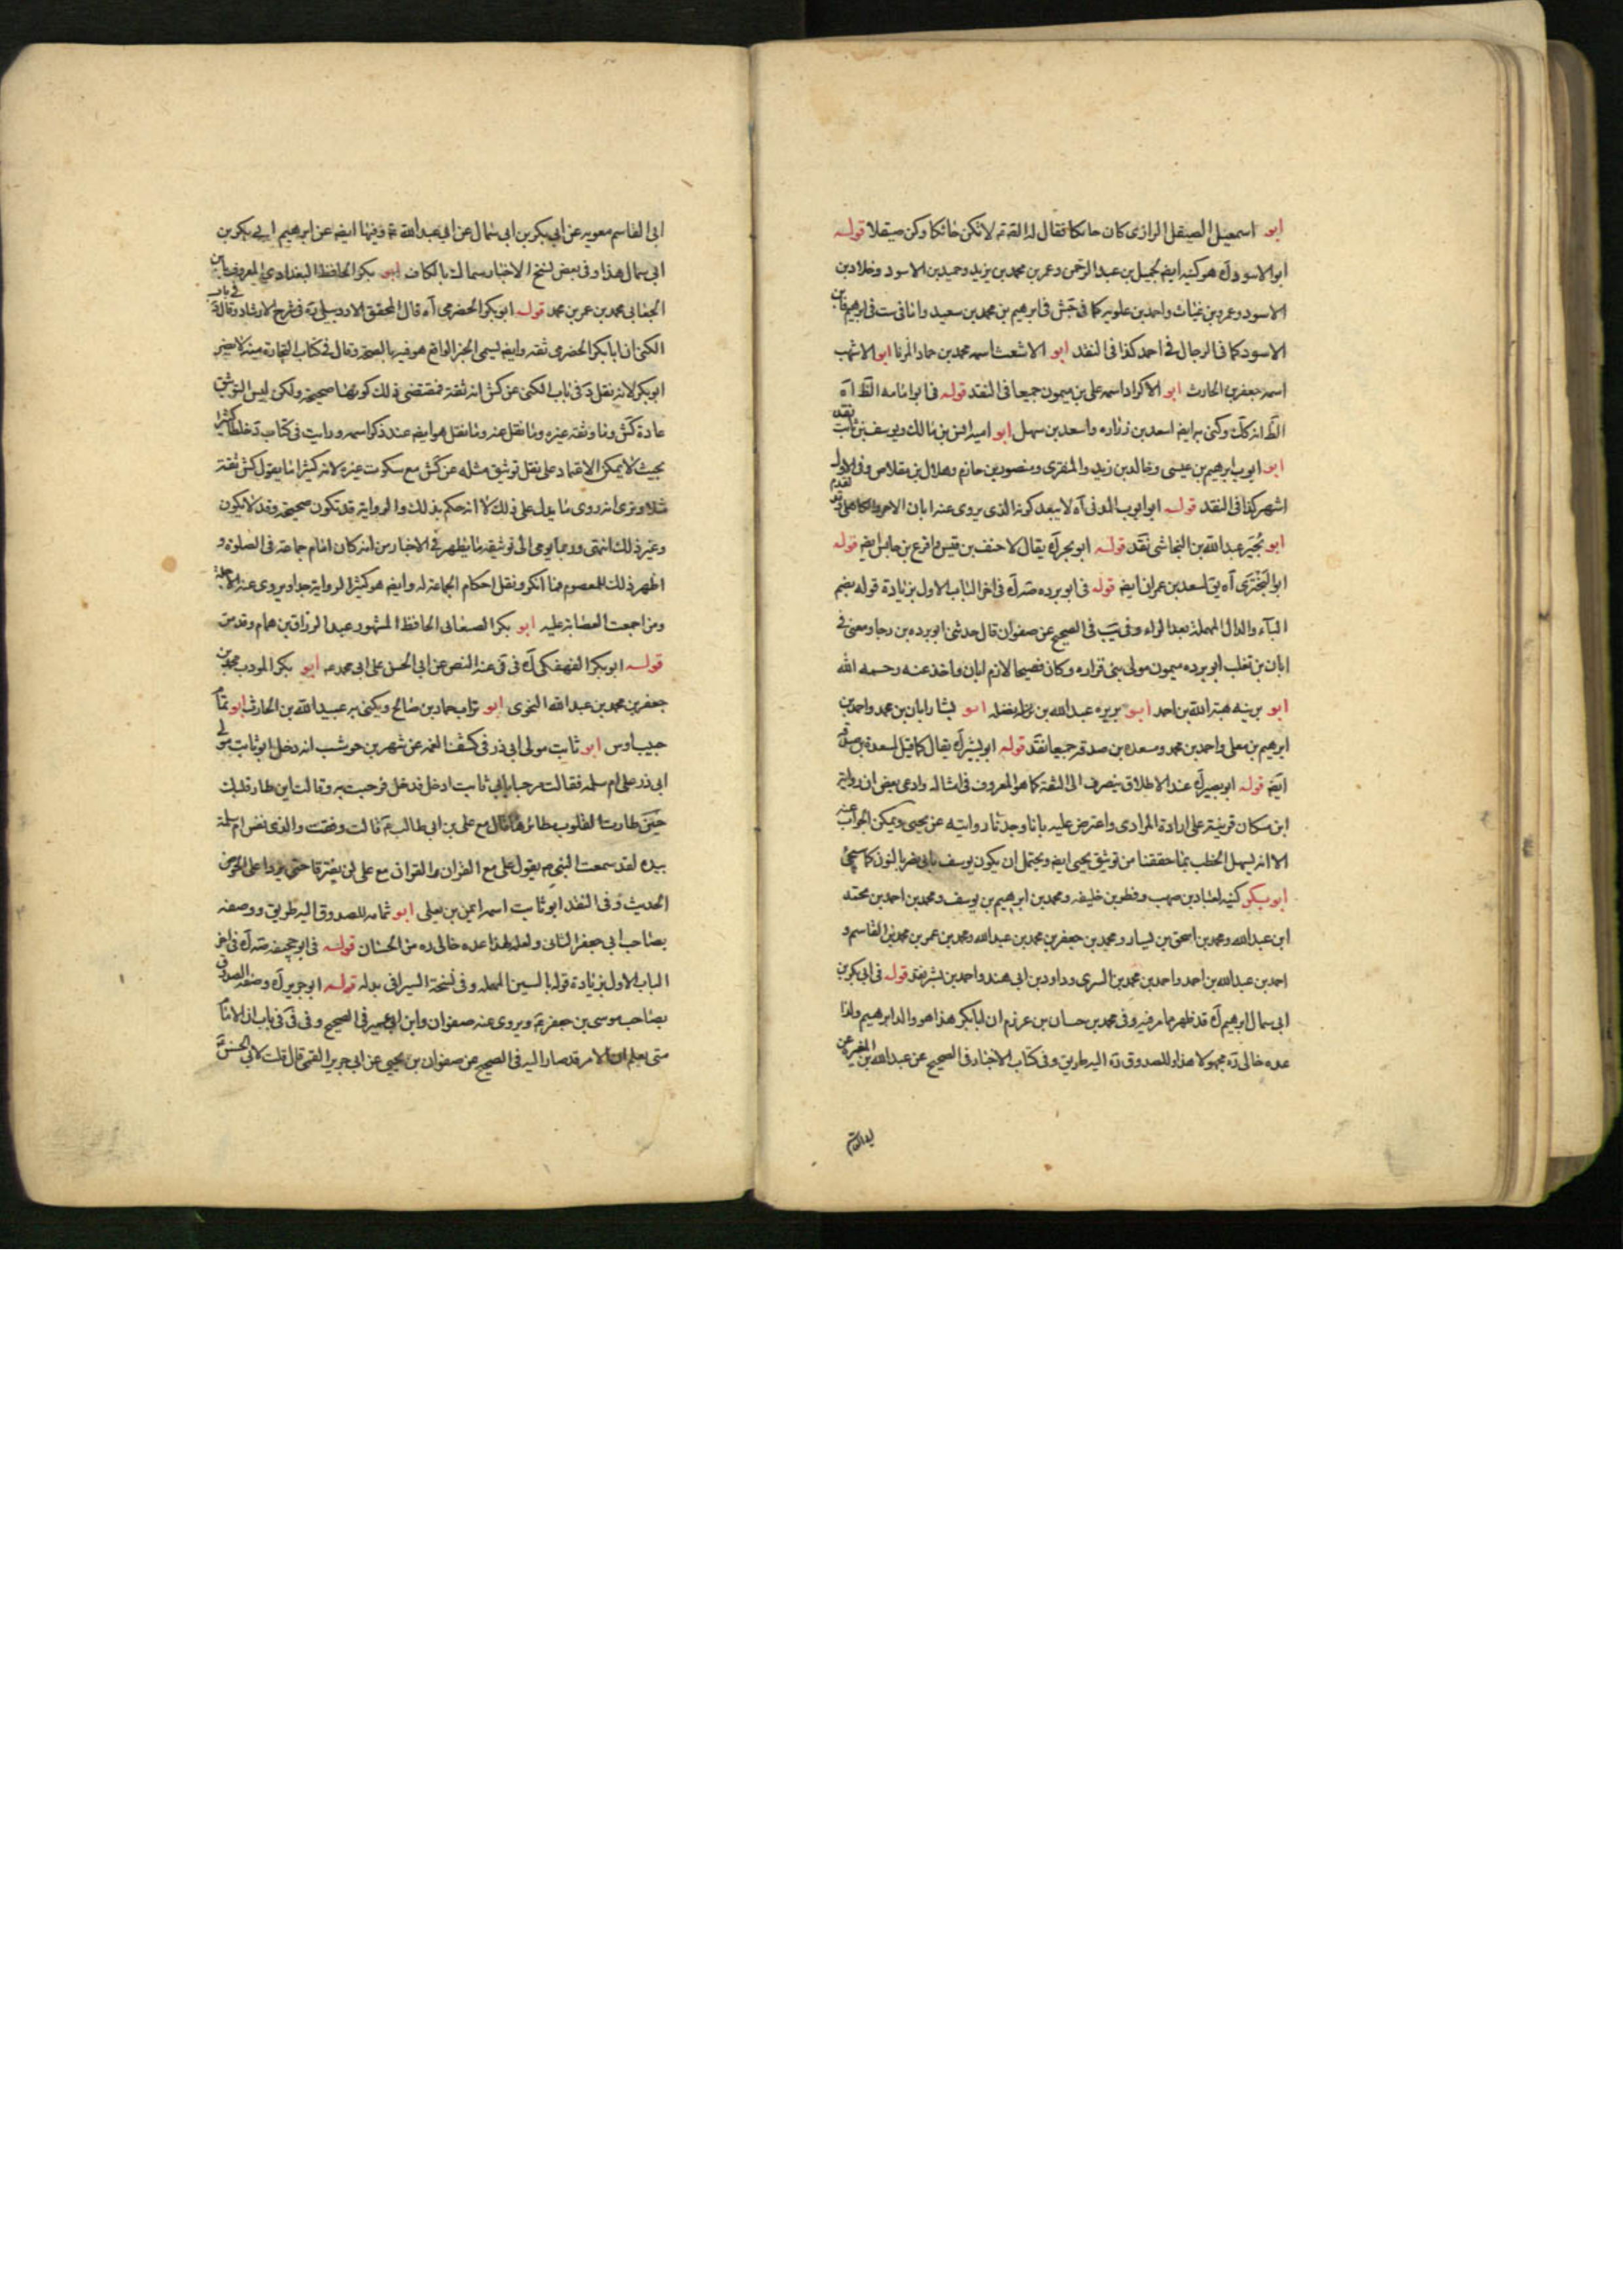 ابو اسمعيل الصيقل الرازى كان حائكا فقال له القه ته لا تكن حائكا وكن صيقلا قوله
ابو الاسود ك هو كنيه ايضا لجميل بن عبد الرحمن وعمر بن محمد بن يزيد وحميد بن الاسود وخلاد بن
الاسود وعمرو بن غياث واحمد بن علويه كما فى جش فى ابرهيم بن محمد بن سعيد
الاسود كما فى الرجال فى احمد كذا فى النقد ابو الاشعث اسمه محمد بن حماد ابو الاشهب
اسمه جعفر بن الحارث ابو الاكراد اسمه على بن ميمون جميعا فى النقد قوله فى ابو امامه الظ اه
الظ انه كك وكنى به ايضا اسعد بن زراره واسعد بن سهل ابو امية انس بن مالك ويوسف بن ثابت
ابو ايوب ابرهيم بن عيسى وخالد بن زيد والمقرى ومنصور بن حازم وهلال بن مقلاص وفى الاول
اشهر كذا فى النقد قوله ابو ايوب المدنى اه لا يبعد كونه الذى يروى عنه ابان الاحمر
ابو بجير عبد الله بن النجاشى نقد قوله ابو بحر ك يقال لاحنف بن قيس واقرع بن حابس ايضا قوله
ابو البخترى اه يق لسعد بن عمران ايضا قوله فى ابو برده فى اخر الباب الاول بزيادة قوله بضم
البآء والدال المهملة بعد الراء وفى يب فى الصحيح عن صفوان قال حدثنى ابو برده بن رجا ومضى فى
ابان بن تغلب ابو برده ميمون مولى بنى فزاره وكان فصيحا لازم ابان واخذ عنه رحمه الله
ابو بريه هبة الله بن احمد ابو بريره عبد الله بن ابو بشار ابان بن محمد واحمد بن
ابرهيم بن معلى واحمد بن محمد ومسعده بن صدقه جميعا نقد قوله ابو بشر ك يقال كما قيل لمسعدة بن صدقة
ايضا قوله ابو بصير ك عند الاطلاق ينصرف الى الثقة كما هو المعروف فى امثاله وادعى بعض ان رواية
ابن مسكان قرينة على ارادة المرادى واعترض عليه بانا وجدنا روايته عن يحيى ويمكن الجواب عنه
الا انه يسهل الخطب بما حققنا من توثيق يحيى ايضا ويحتمل ان يكون يوسف بابى نصر بالنون كما سيجئ
ابو بكر كنيه لعباد بن صهيب وفطر بن خليفه ومحمد بن ابرهيم بن يوسف ومحمد بن احمد بن محمد
ابن عبد الله ومحمد بن اسحق بن يسار ومحمد بن جعفر بن محمد بن عبد الله ومحمد بن عمر بن محمد بن القاسم و
احمد بن عبد الله بن احمد واحمد بن محمد بن السرى وداود بن ابى هند واحمد بن بشر نقد قوله فى ابى بكر بن
ابى سمال ابرهيم ك قد ظهر ما مر فيه وفى محمد بن حسان بن عرزم ان ابا بكر هذا هو والد ابرهيم ولذا
عده خالى ره مجهولا هذا وللصدوق ره اليه طريق وفى كتاب الاخبار فى الصحيح عن عبد الله بن المغيره عن
ابى القاسم
ابى القاسم معويه عن ابى بكر بن ابى سمال عن ابى عبد الله ع وفيها ايضا عن ابرهيم ابى بكر بن
ابى سمال هذا وفى بعض نسخ الاخبار سماك بالكاف ابو بكر الحافظ البغدادى المعروف بابن
الجعابى محمد بن عمر بن محمد قوله ابو بكر الحضرمى اه قال المحقق الاردبيلى ره فى شرح الارشاد وقال فى باب
الكنى ان ابا بكر الحضرمى ثقه وايضا يسمى الخبر الواقع هو فيه بالصحة وقال فى كتاب التجارة منه لا يضر
ابو بكر لانه نقل د فى باب الكنى عن كش انه ثقة فمقتضى ذلك كونها صحيحة ولكن ليس التوثيق
عادة كش وما وثقه غيره وما نقل عنه وما نقل هو ايضا عند ذكر اسمه ورايت فى كتاب د خلطا كثيرا
بحيث لا يمكن الاعتماد على نقل توثيق مثله عن كش مع سكوت غيره لانه كثيرا ما يقول كش ثقة
مثلا ونرى انه روى ما يدل على ذلك لا انه حكم بذلك والرواية قد تكون صحيحة وقد لا يكون
وغير ذلك انتهى وربما يومى الى توثيقه ما يظهر فى الاخبار من انه كان امام جماعة فى الصلوة و
اظهر ذلك للمعصوم فما انكر ونقل احكام الجماعة له وايضا هو كثير الرواية جدا ويروى عنه الاجلة
ومن اجمعت العصابة عليه ابو بكر الصنعانى الحافظ المشهور عبد الرزاق بن همام وقد مر
قوله ابو بكر الفهفكى ك فى فى عنه النص عن ابى الحسن على ابى محمد ع ابو بكر المودب محمد بن
جعفر بن محمد بن عبد الله النحوى ابو تراب حماد بن صالح ويكنى به عبيد الله بن الحارث ابو تمام
حبيب اوس ابو ثابت مولى ابى ذر فى كشف الغمه عن شهر بن حوشب انه دخل ابو ثابت مولى
ابى ذر على ام سلمه فقالت مرحبا بابى ثابت ادخل فدخل فرحبت به وقالت اين طار قلبك
حين طارت القلوب مطائرها قال مع على بن ابى طالب ع قالت وفقت والذى نفس ام سلمة
بيده لقد سمعت النبى ص يقول على مع القران والقران مع على لن يفترقا حتى يردا على الحوض
الحديث وفى النقد ابو ثابت اسمه ايمن بن يعلى ابو ثمامه للصدوق اليه طريق ووصفه
بصاحب ابى جعفر الثانى ولعله لهذا عده خالى ره من الحسان قوله فى ابو جحيفه فى اخر
الباب الاول بزيادة قوله بالسين المهمله وفى نسخة السيرافى بدله قوله ابو جرير ك وصفه الصدوق
بصاحب موسى بن جعفر ع ويروى عنه صفوان وابن ابى عمير فى الصحيح وفى فى فى باب ان الامام
متى يعلم ان الامر قد صار اليه فى الصحيح عن صفوان بن يحيى عن ابى جرير القمى قال قلت لابى الحسن ع